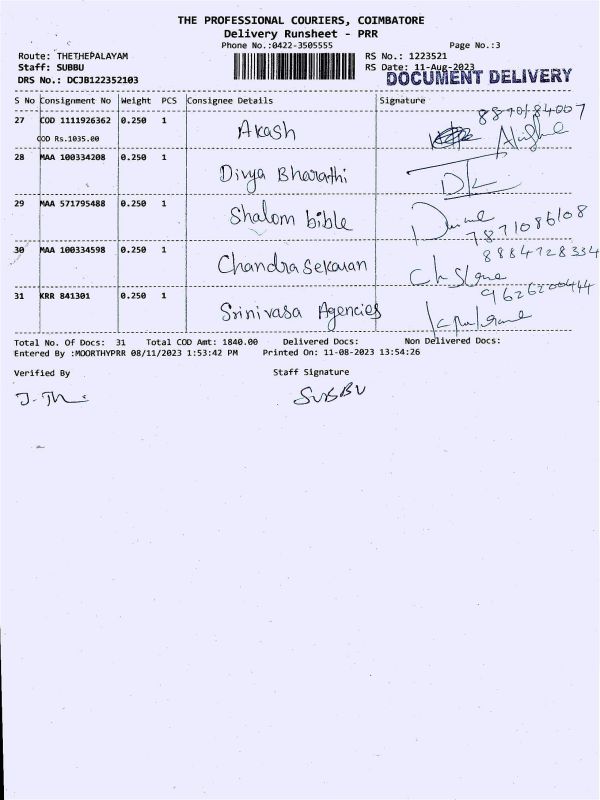 THE PROFESSIONAL COURIERS, COIMBATORE
Delivery Runsheet - PRR
Phone No.:0422-3505555 Page No.:3
Route: THETHEPALAYAM RS No.: 1223521
Staff: SUBBU RS Date: 11-Aug-2023
DRS No.: DCJB122352103 DOCUMENT DELIVERY
S No Consignment No Weight PCS Consignee Details Signature
27 COD 1111926362 0.250 1 Akash
COD Rs.1035.00
28 MAA 100334208 0.250 1 Divya Bharathi
29 MAA 571795488 0.250 1 Shalom bible
7871086108
30 MAA 100334598 0.250 1 Chandrasekaran 8884728334
31 KRR 841301 0.250 1 Srinivasa Agencies 9626200444
Total No. Of Docs: 31 Total COD Amt: 1840.00 Delivered Docs: Non Delivered Docs:
Entered By :MOORTHYPRR 08/11/2023 1:53:42 PM Printed On: 11-08-2023 13:54:26
Verified By Staff Signature
SUBBU